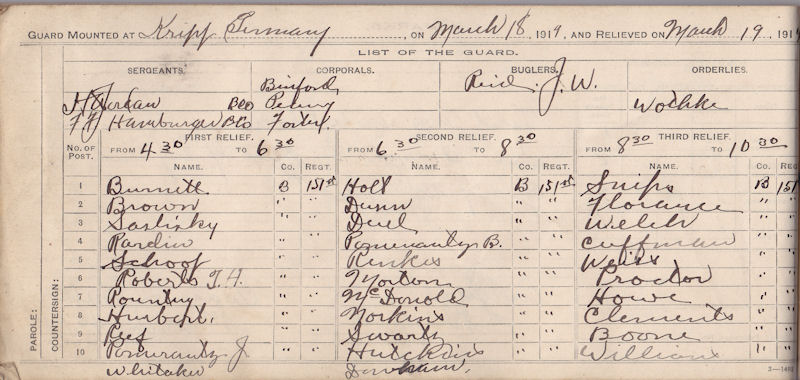 GUARD MOUNTED AT Kripp Germany, ON March 18, 1919, AND RELIEVED ON March 19, 191
LIST OF THE GUARD.
SERGEANTS. CORPORALS. BUGLERS. ORDERLIES.
Binford Reid. J. W.
Jordan Penny Wochke
Hamburger Foster
FIRST RELIEF. SECOND RELIEF. THIRD RELIEF.
No. of Post. FROM 4 30 TO 6 30 FROM 6 30 TO 8 30 FROM 8 30 TO 10 30
NAME. Co. REGT. NAME. Co. REGT. NAME. Co. REGT.
1 Burnett B 151st Holt B 151st Snips B 151
2 Brown " " Dunn " " Florance " "
3 " " Duel " " Welch " "
4 Rardin " " Pomerantz B. " " Cuffman " "
5 Schoof " " " " Weits " "
6 Roberts T. H. " " Morton " " Proctor " "
7 Pountry " " McDonold " " Howe " "
8 Hurbert. " " Yorkins " " Clements " "
9 " " Swarts " " Boone " "
10 Pomerantz J. " " Hutchins " " Williams " "
Whitaker
PAROLE:
COUNTERSIGN: